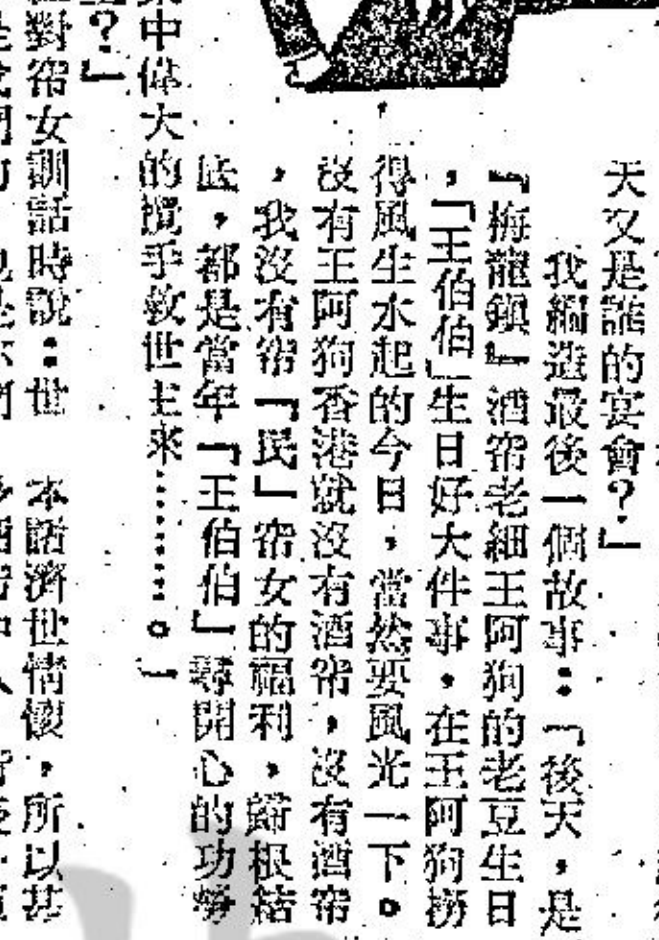 天又是誰的宴會？」
我編造最後一個故事：「後天，是
『梅龍鎮』酒帘老細王阿狗的老豆生日
，「王伯伯」生日好大件事，在王阿狗撈
得風生水起的今日，當然要風光一下。
沒有王阿狗香港就沒有酒帘，沒有酒帘
，我沒有帘「民」帘女的福利，歸根結
底，都是當年「王伯伯」尋開心的功勞
中偉大的攪手救世主來………。」
？」
對帘女訓話時說：世
本諸濟世情懷，所以甚